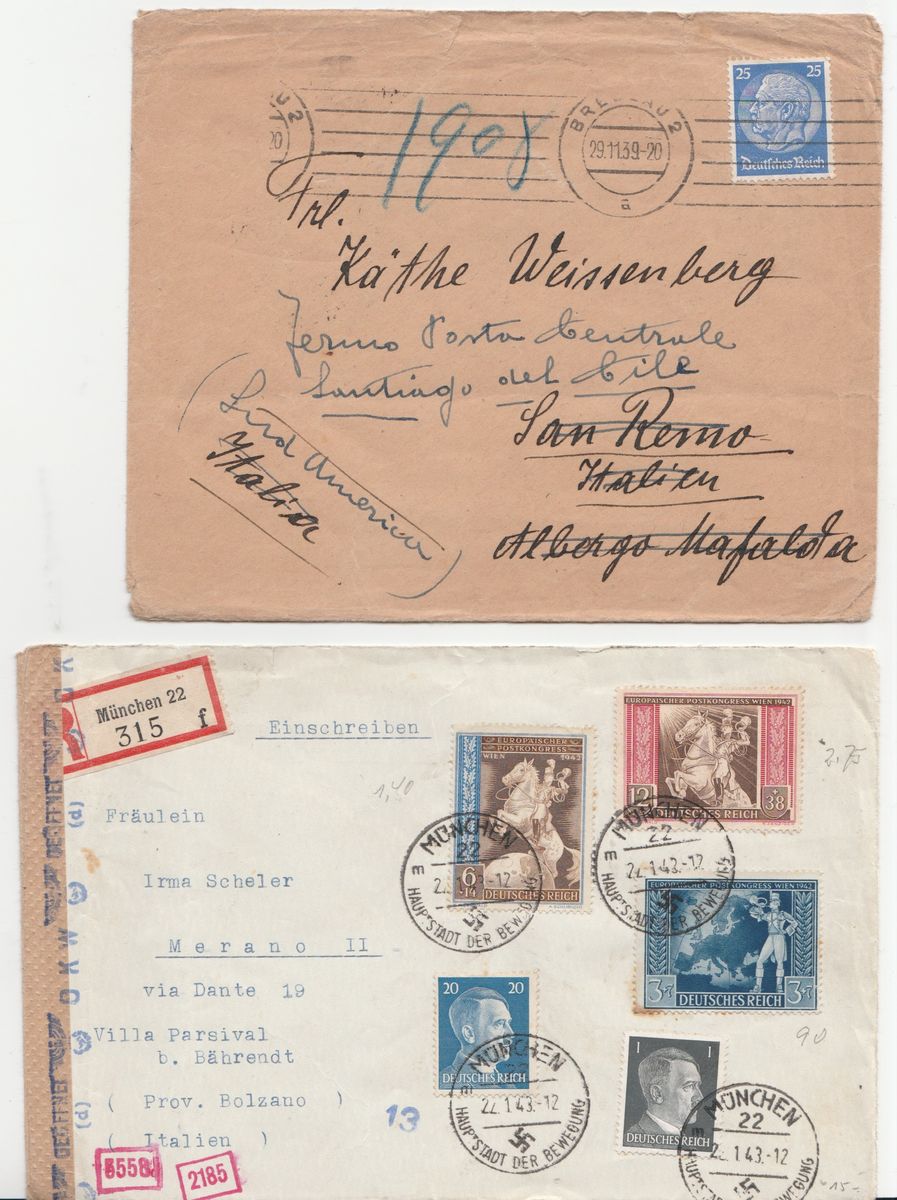 U 2
20
1908
BRESLAU 2
29.11.39.-20
a
25 25
Deutsches Reich
Frl.
Käthe Weissenberg
Fermo Posta Centrale
Santiago del Cile
San Remo
Italien
Albergo Mafalda
(Süd America)
Italia
München 22
315 f
Einschreiben
Fräulein
Irma Scheler
Merano II
via Dante 19
Villa Parsival
b. Bährendt
( Prov. Bolzano )
( Italien )
5558
2185
13
GEÖFFNET
(d)
OKW
GEÖFFNET
(d)
1,40
2,75
90
-15-
EUROPÄISCHER
POSTKONGRESS
WIEN 1942
6
+14
DEUTSCHES REICH
EUROPÄISCHER POSTKONGRESS WIEN 1942
12 + 38
DEUTSCHES REICH
EUROPÄISCHER POSTKONGRESS WIEN 1942
3+7 3+7
DEUTSCHES REICH
20 20
DEUTSCHES REICH
1 1
DEUTSCHES REICH
MÜNCHEN
22
E
22.1.43.-12
HAUPTSTADT DER BEWEGUNG
MÜNCHEN
22
E
22.1.43.-12
HAUPTSTADT DER BEWEGUNG
MÜNCHEN
E
22.1.43.-12
HAUPTSTADT DER BEWEGUNG
MÜNCHEN
22
E
22.1.43.-12
HAUPTSTADT DER BEWEGUNG